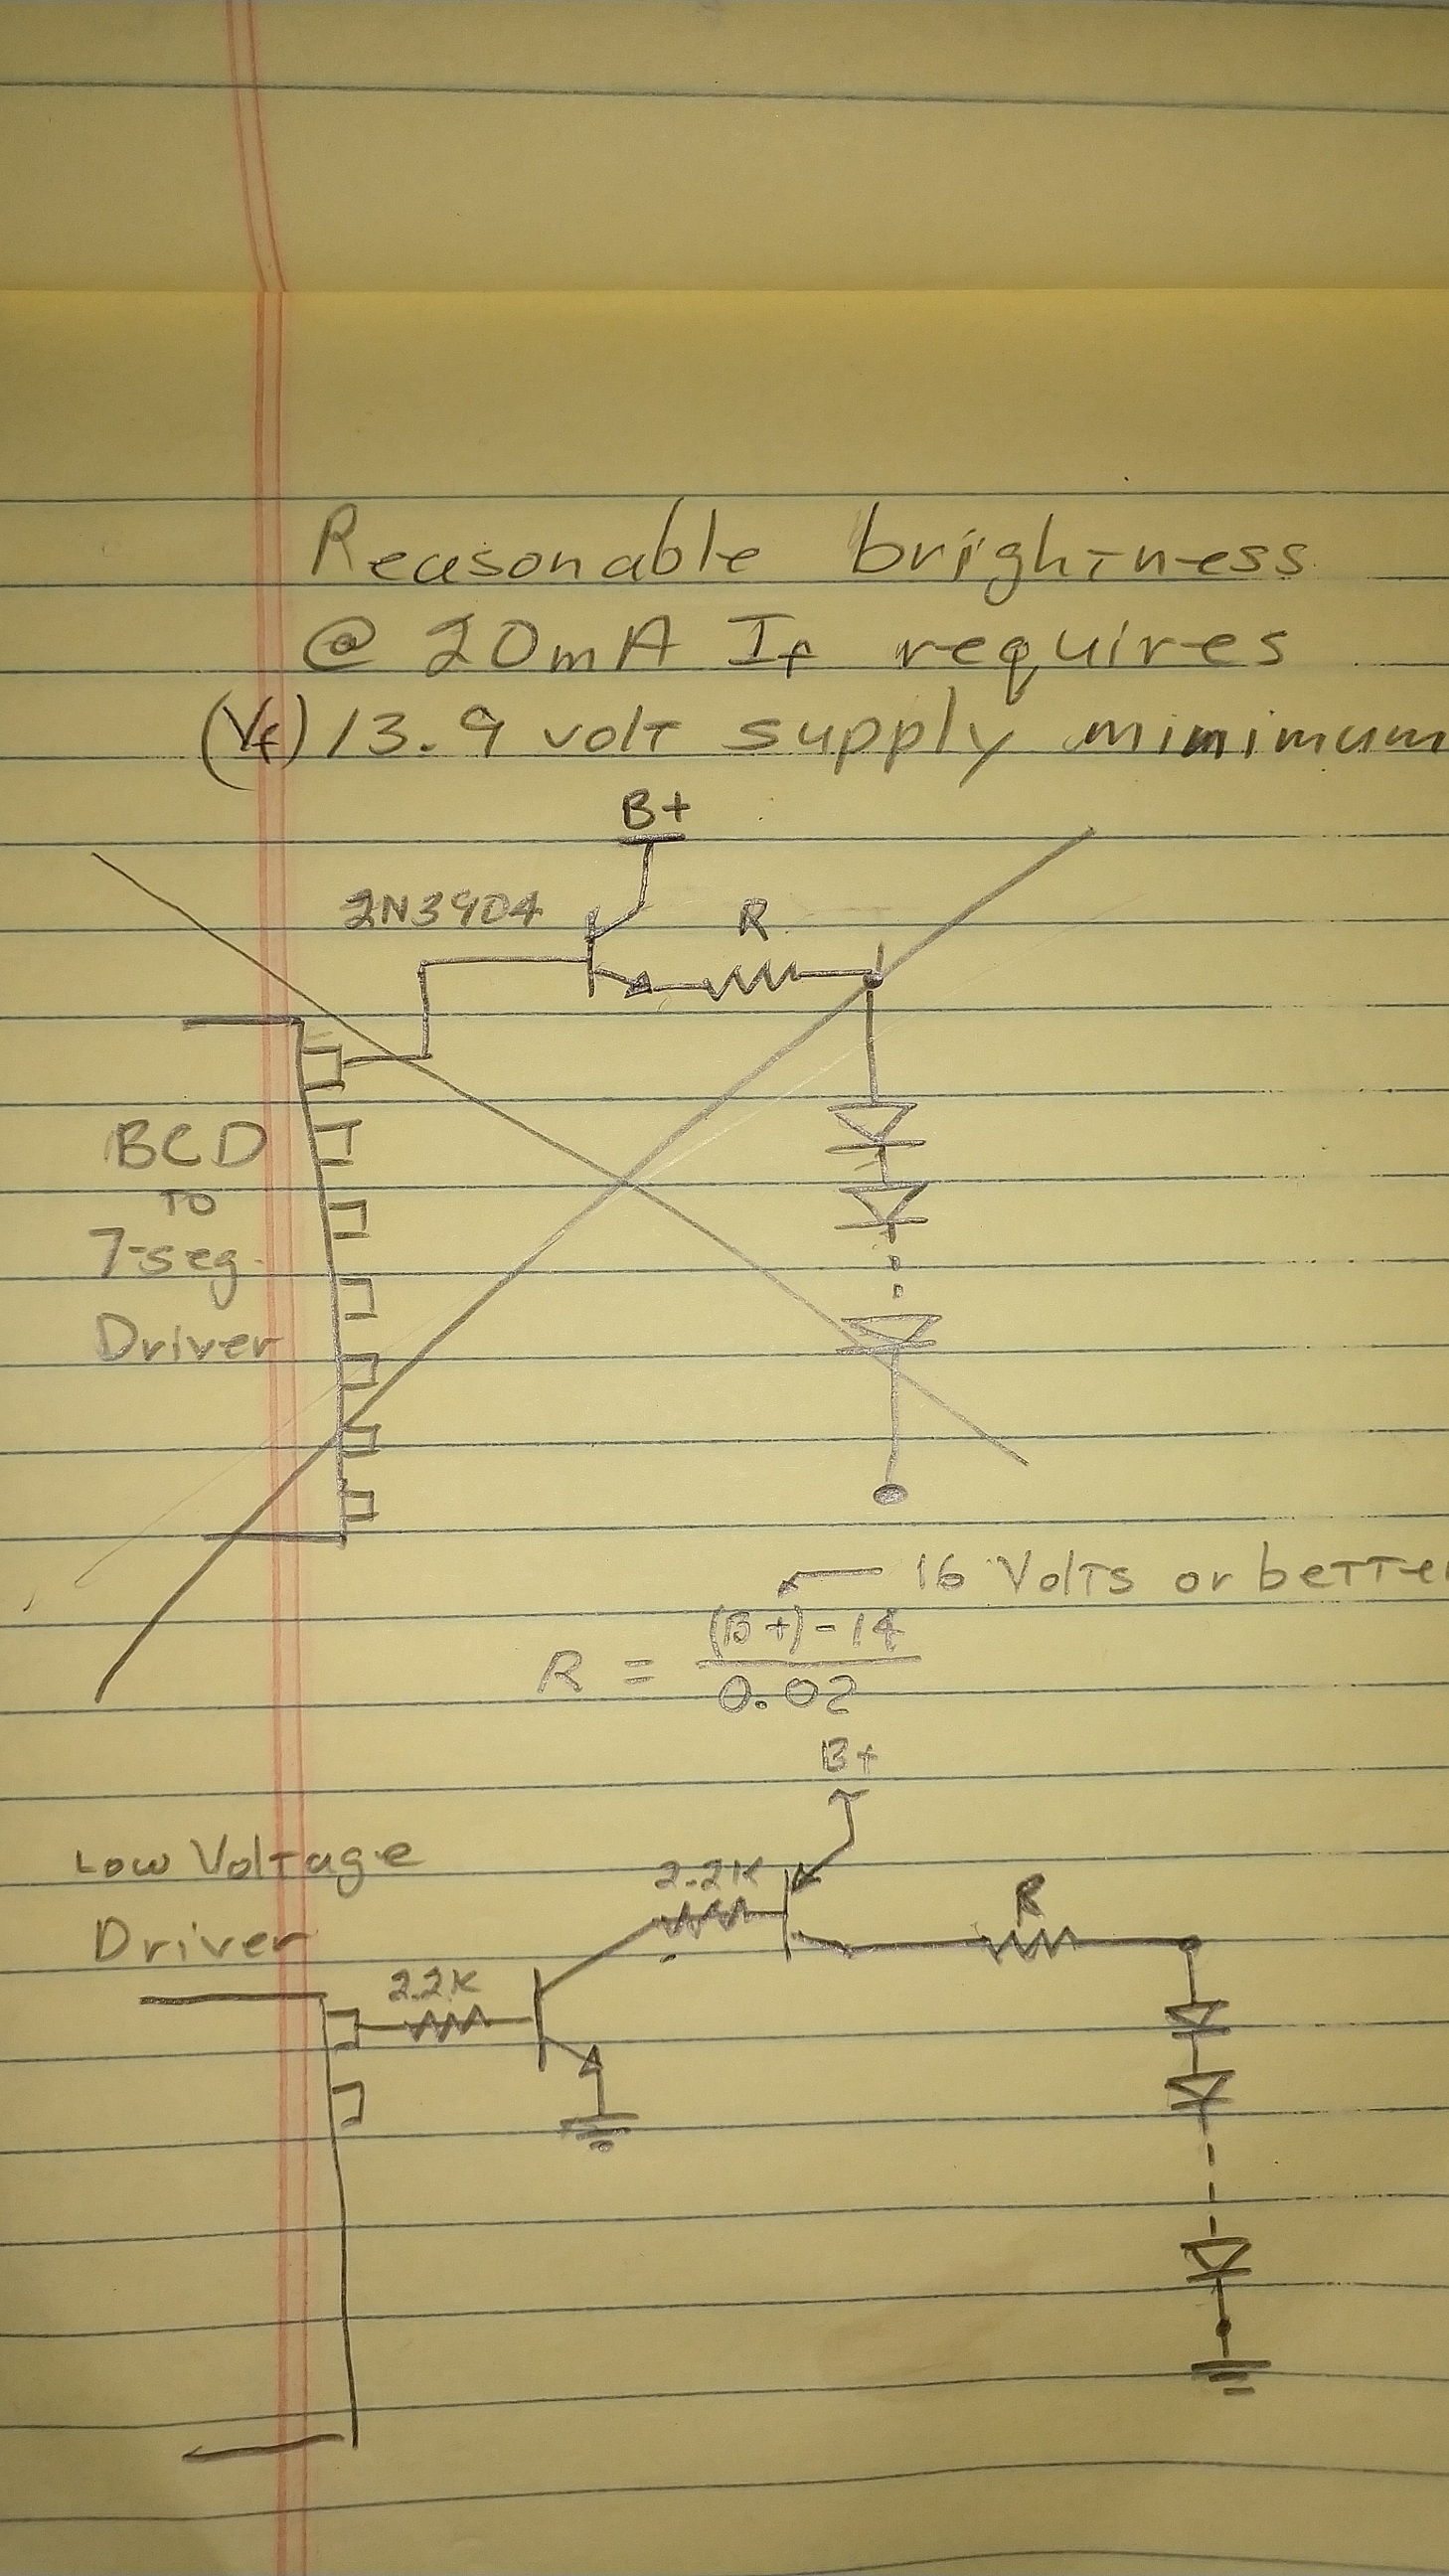 Reasonable brightness
@ 20mA If requires
(Vf) 13.9 volt supply mimimum
B+
2N3904
R
BCD
TO
7-seg.
Driver
16 Volts or better
(B+)-14
R =
0.02
B+
Low Voltage
Driver
2.2K
R
2.2K